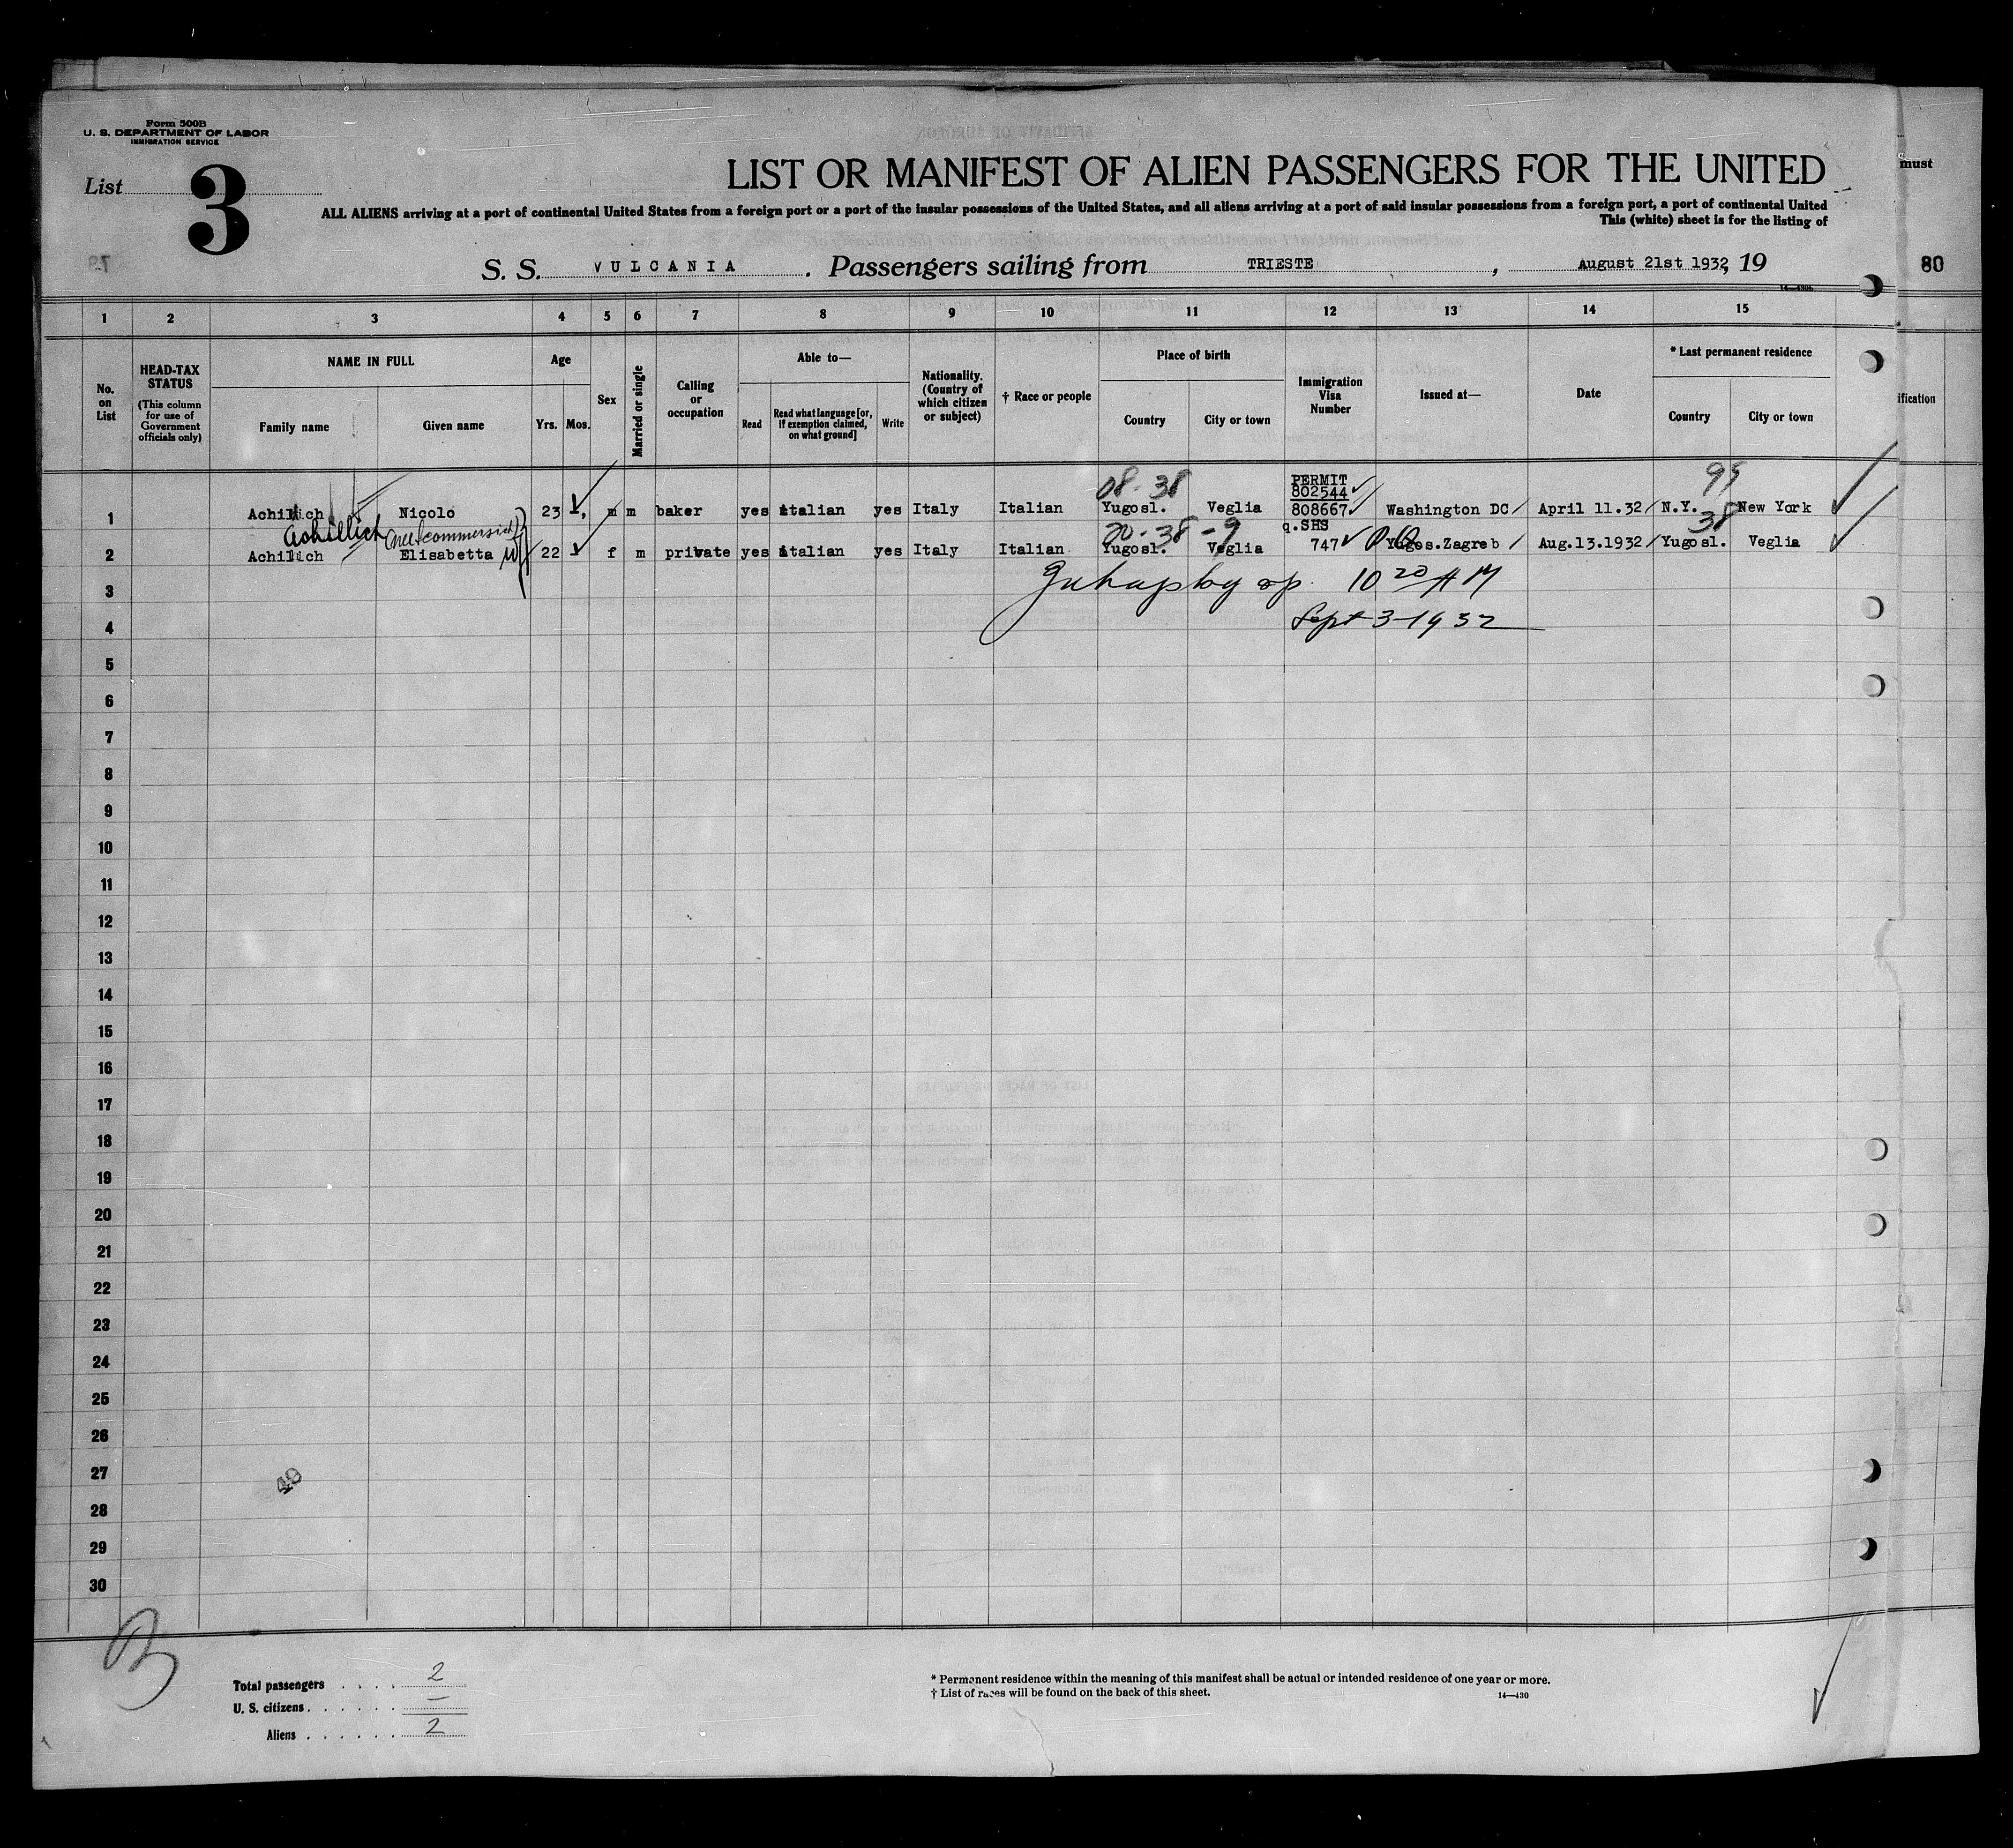 Form 500B
U. S. DEPARTMENT OF LABOR
IMMIGRATION SERVICE
List 3
LIST OR MANIFEST OF ALIEN PASSENGERS FOR THE UNITED
ALL ALIENS arriving at a port of continental United States from a foreign port or a port of the insular possessions of the United States, and all aliens arriving at a port of said insular possessions from a foreign port, a port of continental United
This (white) sheet is for the listing of
must
S. S. VULCANIA. Passengers sailing from TRIESTE, August 21st 1932, 19
80
1 2 3 4 5 6 7 8 9 10 11 12 13 14 15
No. on List
HEAD-TAX STATUS (This column for use of Government officials only)
NAME IN FULL
Family name Given name
Age
Yrs. Mos.
Sex
Married or single
Calling or occupation
Able to—
Read
Read what language [or, if exemption claimed, on what ground]
Write
Nationality. (Country of which citizen or subject)
† Race or people
Place of birth
Country City or town
Immigration Visa Number
Issued at—
Date
* Last permanent residence
Country City or town
ification
08-38 PERMIT 802544 99
1 Achillich Nicolo 23 m m baker yes italian yes Italy Italian Yugosl. Veglia 808667 Washington DC April 11.32 N.Y. New York
Achillich (nee commersich) 20-38-9 q.SHS 38
2 Achillich Elisabetta 22 f m private yes italian yes Italy Italian Yugosl. Veglia 747 Yugos.Zagreb Aug.13.1932 Yugosl. Veglia
3 10 20 AM
4 Sept 3-1932
5
6
7
8
9
10
11
12
13
14
15
16
17
18
19
20
21
22
23
24
25
26
27
28
29
30
Total passengers . . . . 2
U. S. citizens . . . . . . —
Aliens . . . . . . 2
* Permanent residence within the meaning of this manifest shall be actual or intended residence of one year or more.
† List of races will be found on the back of this sheet.
14—430